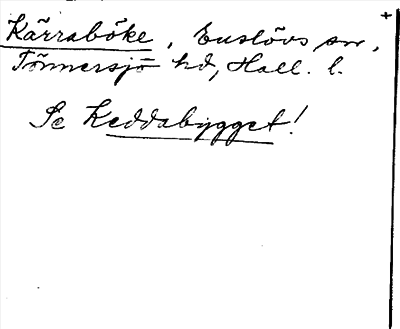 Kärraböke, Enslövs sn,
Tönnersjö hd, Hall. l.
Se Keddabygget!